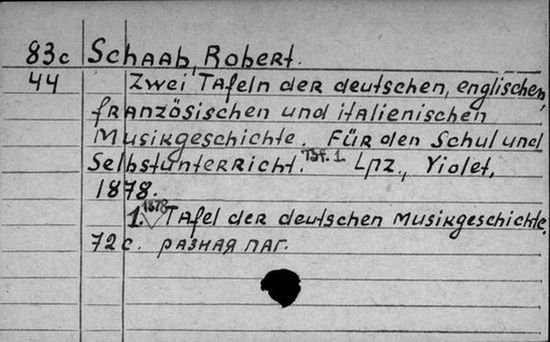 83c Schaab, Robert.
44 Zwei Tafeln der deutschen, englischen,
französischen und italienischen
Musikgeschichte. Für den Schul und
Selbstunterricht. Taf. 1. Lpz., Violet,
1878.
1. 1878 Tafel der deutschen Musikgeschichte.
72 с. разная паг.